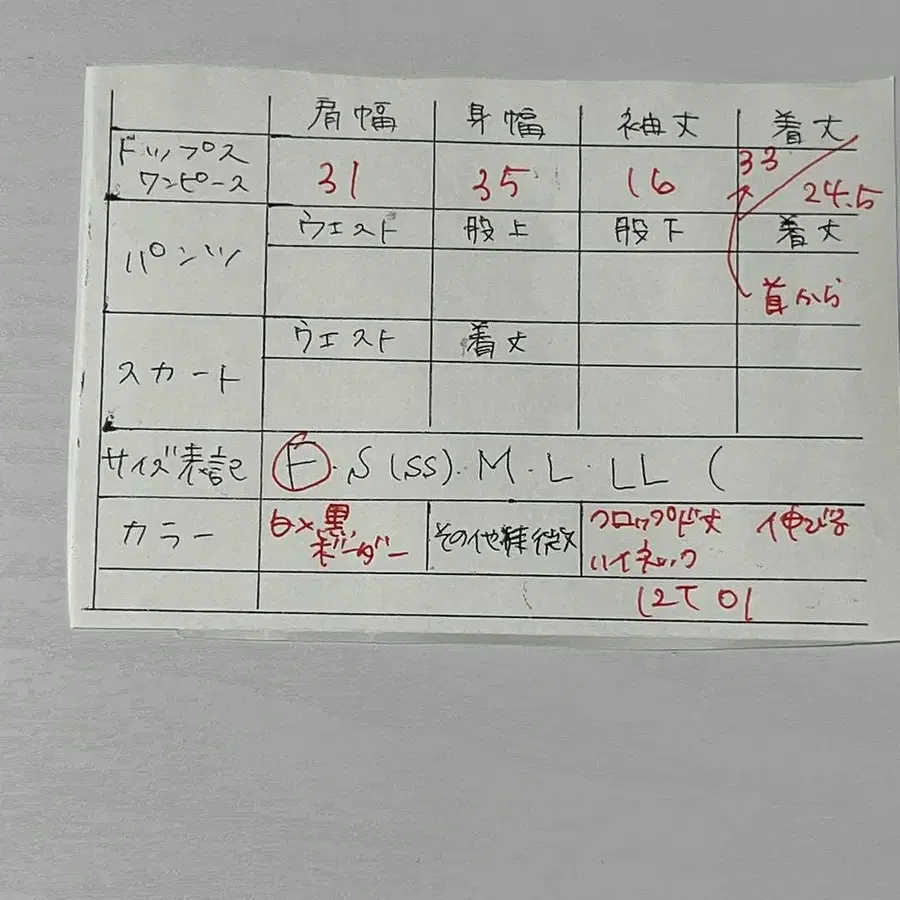 肩幅 身幅 袖丈 着丈
トップス
ワンピース 31 35 16 33 24.5
ウエスト 股上 股下 着丈
パンツ 首から
ウエスト 着丈
スカート
サイズ表記 F・S(SS)・M・L・LL (
カラー 白×黒 ボーダー その他特徴 クロップド丈 伸びる
ハイネック
12T01